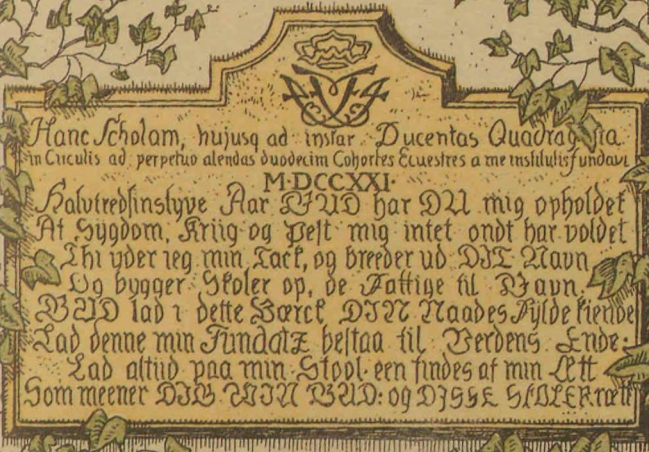 Hanc Scholam, hujusq ad instar Ducentas Quadraginta
in Circulis ad perpetuo alendas duodecim Cohortes Eqvestres a me institutis fundavi
M·DCCXXI·
Halvtredsinstyve Aar GUD har DU mig opholdet
At Sygdom, Kriig og Pest mig intet ondt har voldet
Thi yder ieg min Tack, og breeder ud DIT Navn
Og bygger Skoler op, de Fattige til Gavn
GUD lad i dette Værck DIN Naades Fylde kiende
Lad denne min Fundatz bestaa til Verdens Ende:
Lad altiid paa min Stool een findes af min Ætt
Som meener DIG MIN GUD: og DISSE SKOLER rætt